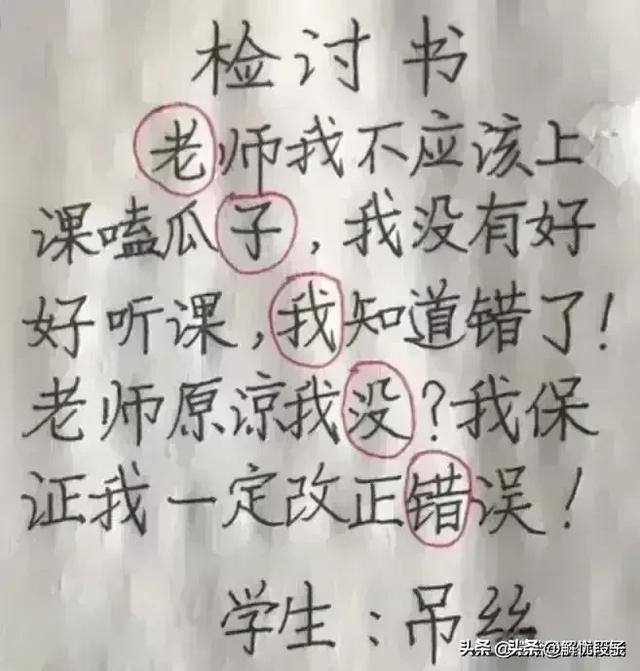 检讨书
老师我不应该上
课嗑瓜子，我没有好
好听课，我知道错了！
老师原谅我没？我保
证我一定改正错误！
学生：吊丝
头条 @头条 @解忧段子